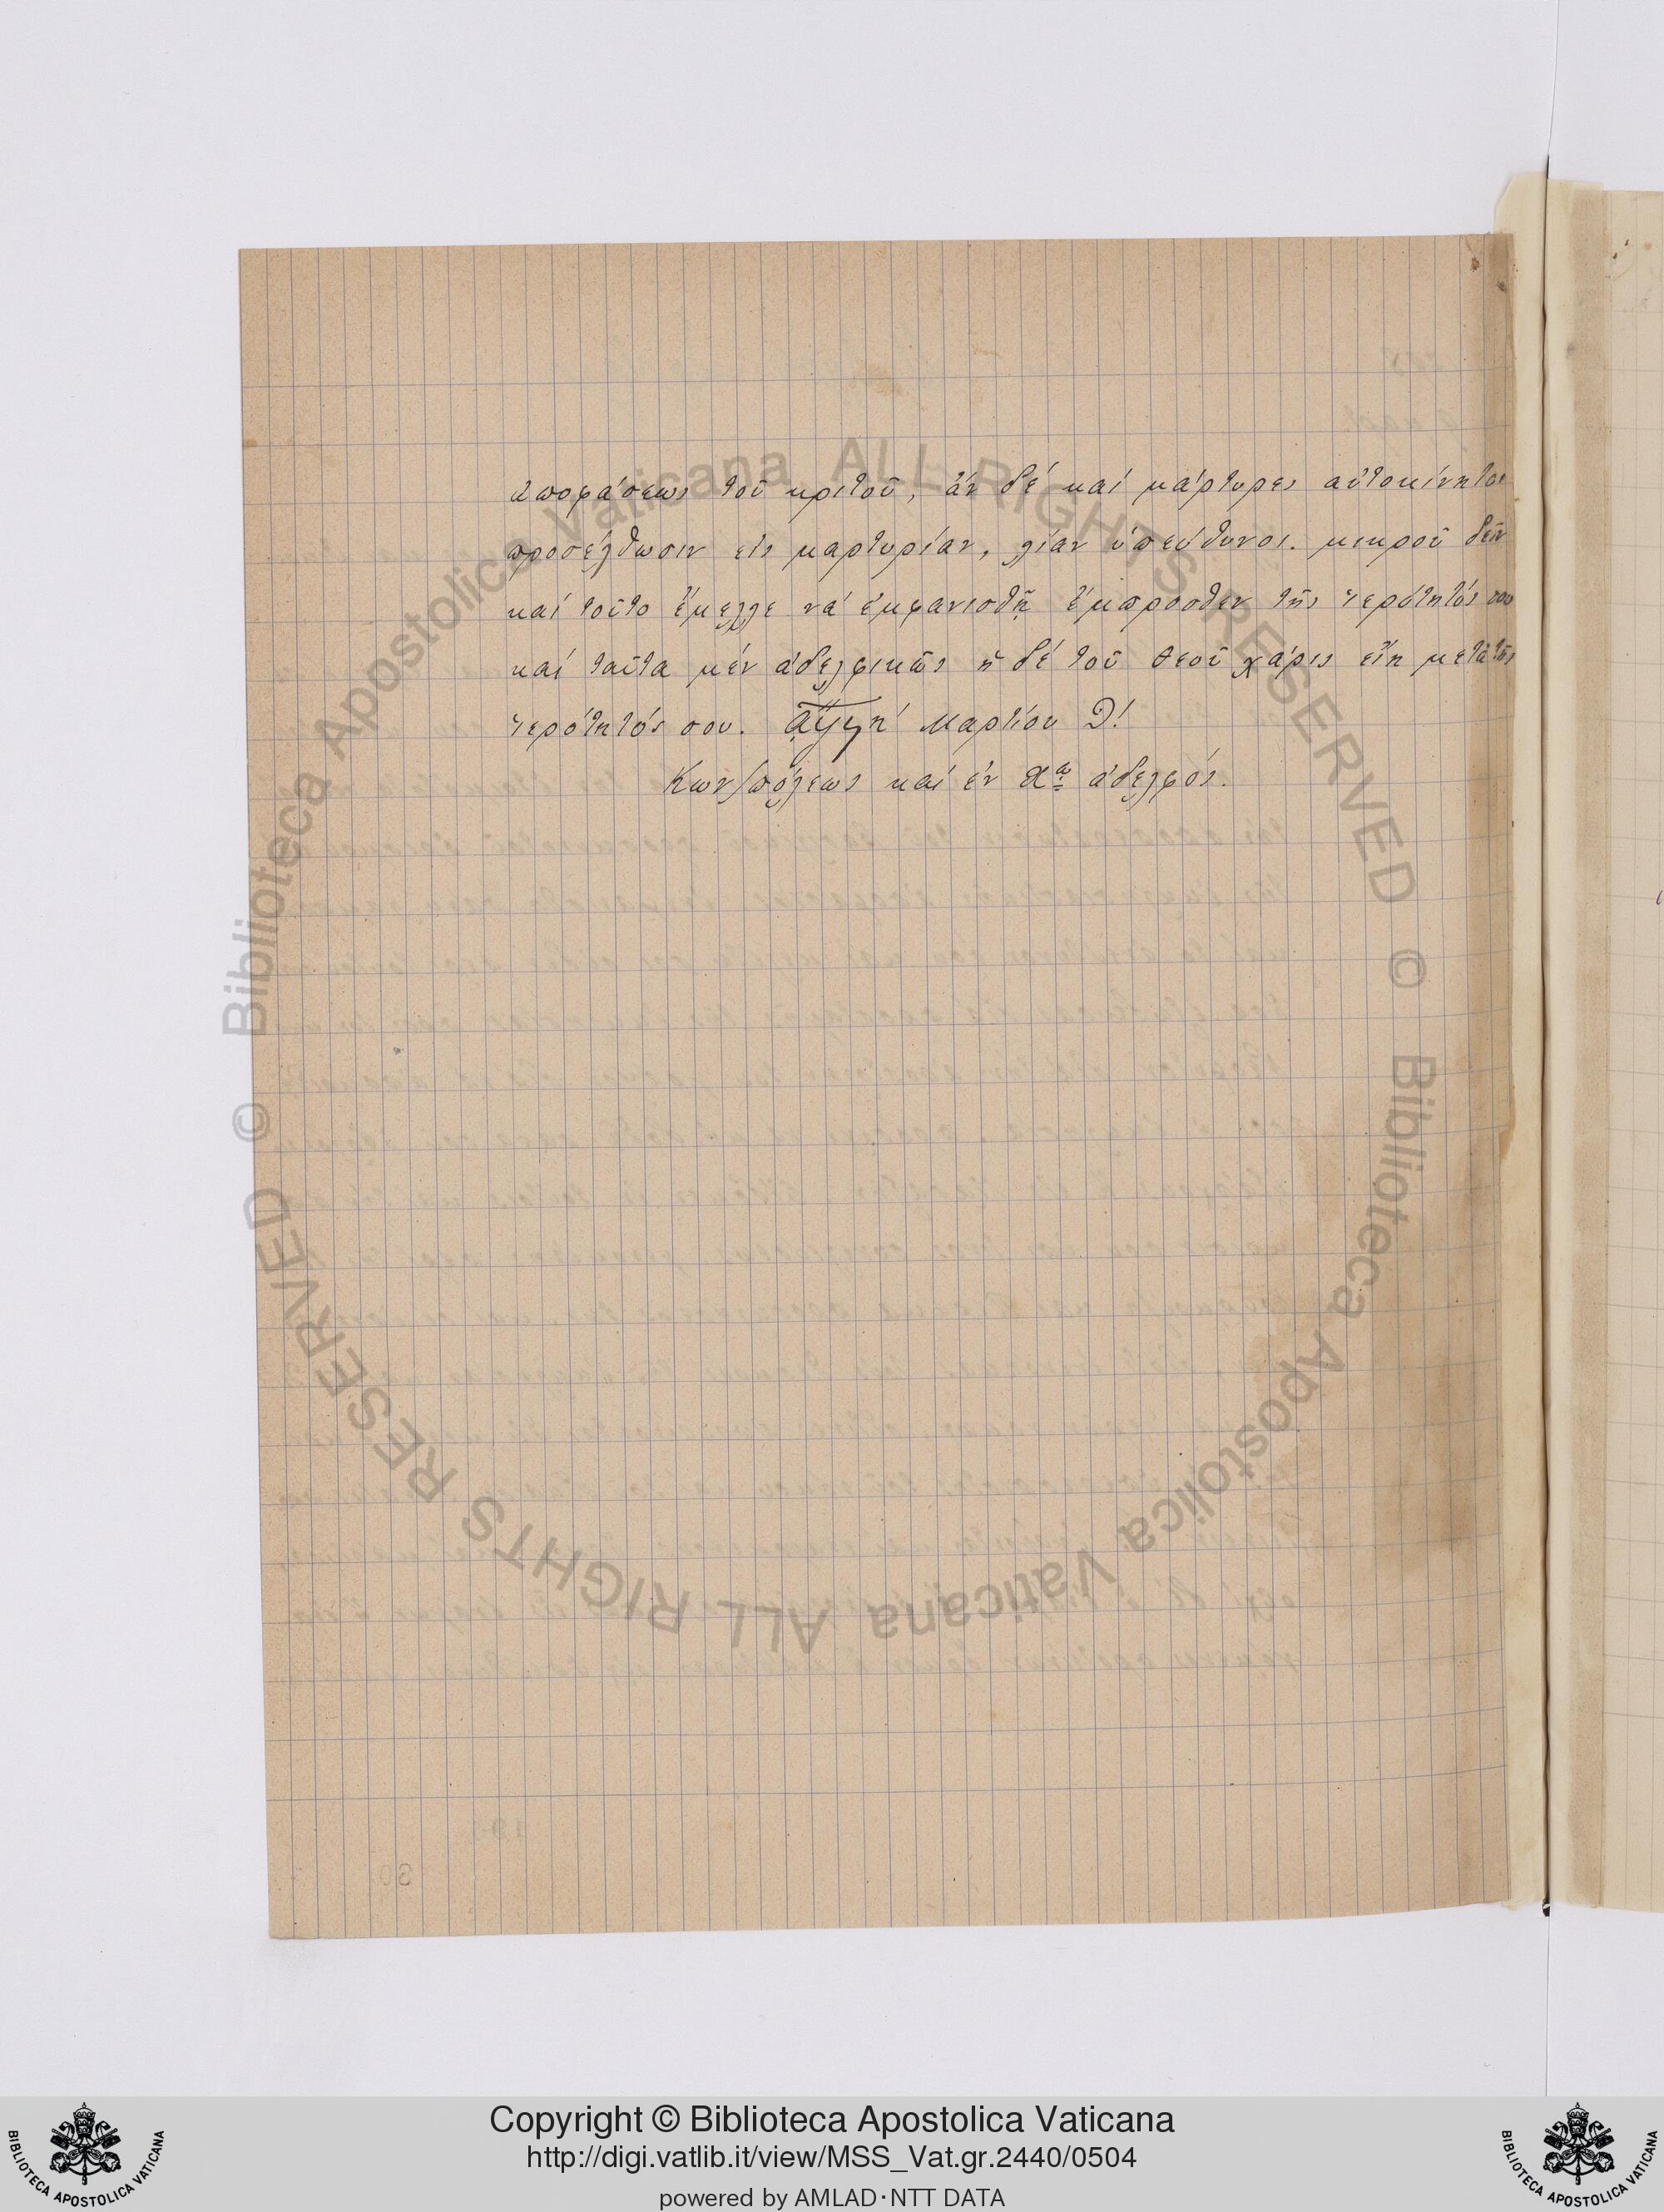 ἀποφάσεως τοῦ κριτοῦ, ἄν δέ καί μάρτυρες αὐτοκίνητοι
προσέλθωσιν εἰς μαρτυρίαν, λίαν ὑπεύθυνοι. μικροῦ δεῖν
καί τοῦτο ἔμελλε νά ἐμφανισθῇ ἔμπροσθεν τῆς ἱερότητός σου
καί ταῦτα μέν ἀδελφικῶς ἡ δέ τοῦ θεοῦ χάρις εἴη μετά τῆς
ἱερότητός σου. Μαρτίου
Κων/πόλεως καί ἐν Χω ἀδελφός.
Biblioteca Apostolica Vaticana ALL RIGHTS RESERVED ©
Biblioteca Apostolica Vaticana ALL RIGHTS RESERVED ©
Copyright © Biblioteca Apostolica Vaticana
http://digi.vatlib.it/view/MSS_Vat.gr.2440/0504
powered by AMLAD·NTT DATA
BIBLIOTECA APOSTOLICA VATICANA
BIBLIOTECA APOSTOLICA VATICANA